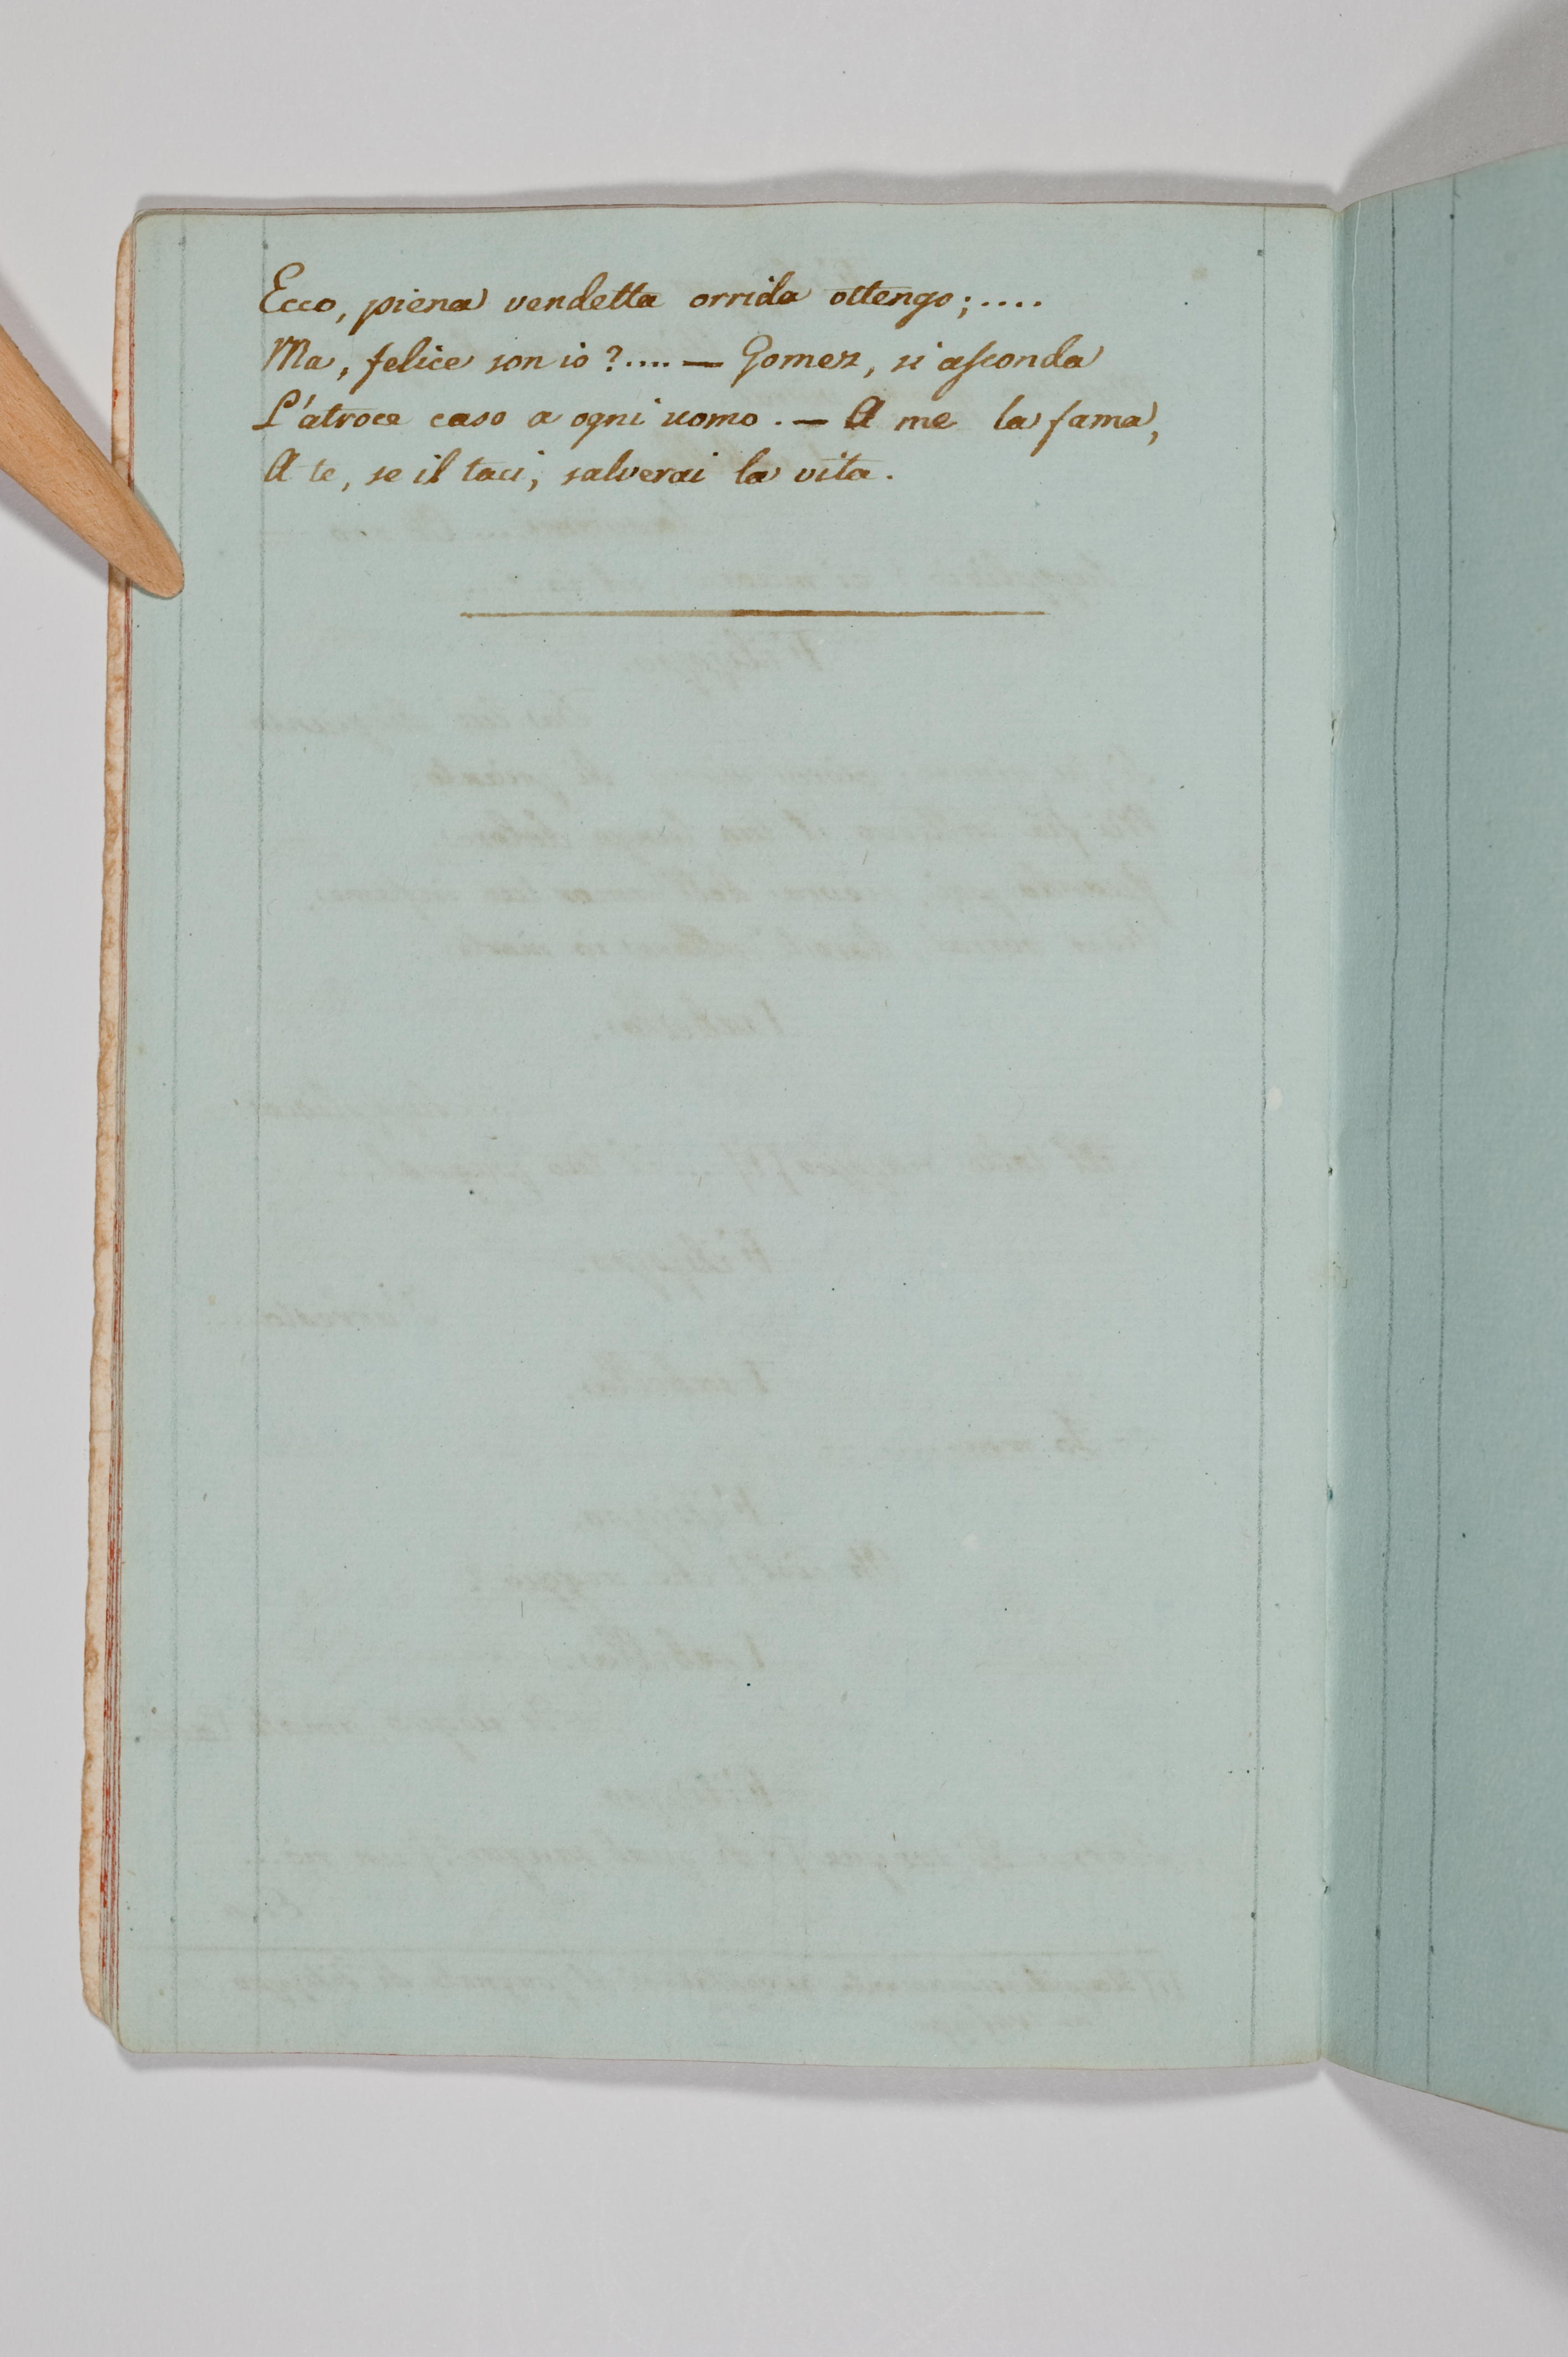 Ecco, piena vendetta orrida ottengo;....
Ma, felice son io?....— Gomez, si asconda
L'atroce caso a ogni uomo.— A me la fama,
A te, se il taci, salverai la vita.